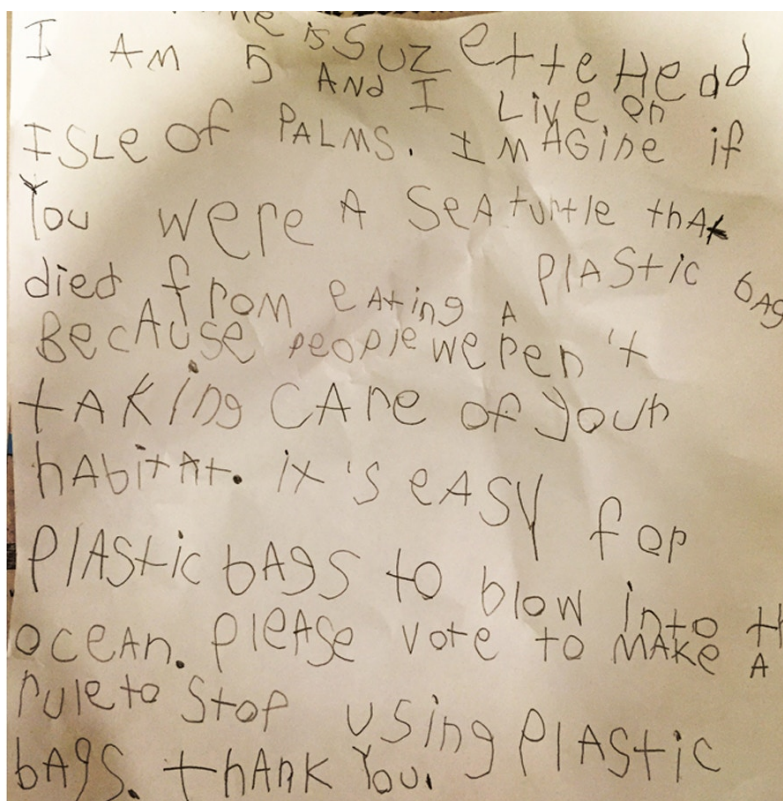 me is Suzette Head
I AM 5 AND I LIVe on
ISLe of PALMS. IMAGine if
You were A SeA turtle thAt
died from eAting A PlAStic bAg
BecAuse people weren't
tAKing CAre of your
hAbitAt. it's eASY for
PlAStic bAgS to blow into th
oceAn. PleAse vote to MAKe A
rule to Stop using PlAStic
bAgS. thAnk You.